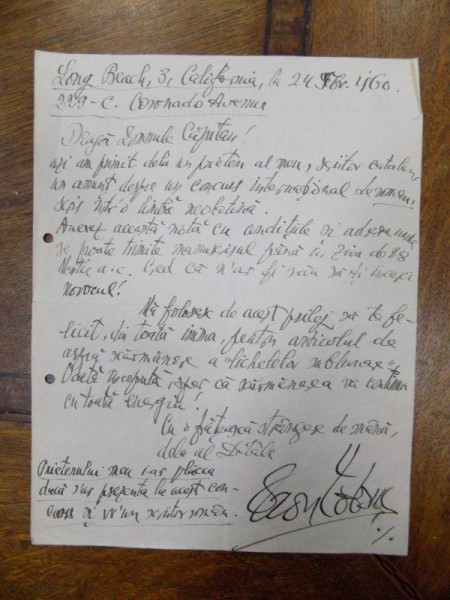 Long Beach, 3, California, la 24 Febr. 960.
229-C. Coronado Avenue
Dragă Domnule Căpitan!
azi am primit dela un prieten al meu, scriitor catalan,
un anunț despre un concurs internațional de roman,
scris într'o limbă neolatină.
Anexez această notă cu condițiile și adresa unde
se poate trimite manuscrisul până în ziua de 28
Martie a.c. Cred că n'ar fi rău să-ți încerci
norocul!
Mă folosesc de acest prilej să te fe-
licit, din toată inima, pentru articolul de
aspră a "lichelelor sublunare".
Odată începută, sper că va continua
cu toată energia!
Cu o frățească strângere de mână,
dela al Dtale
Prietenului meu i-ar plăcea
dacă s'ar prezenta la acest con-
curs și vr'un scriitor român.